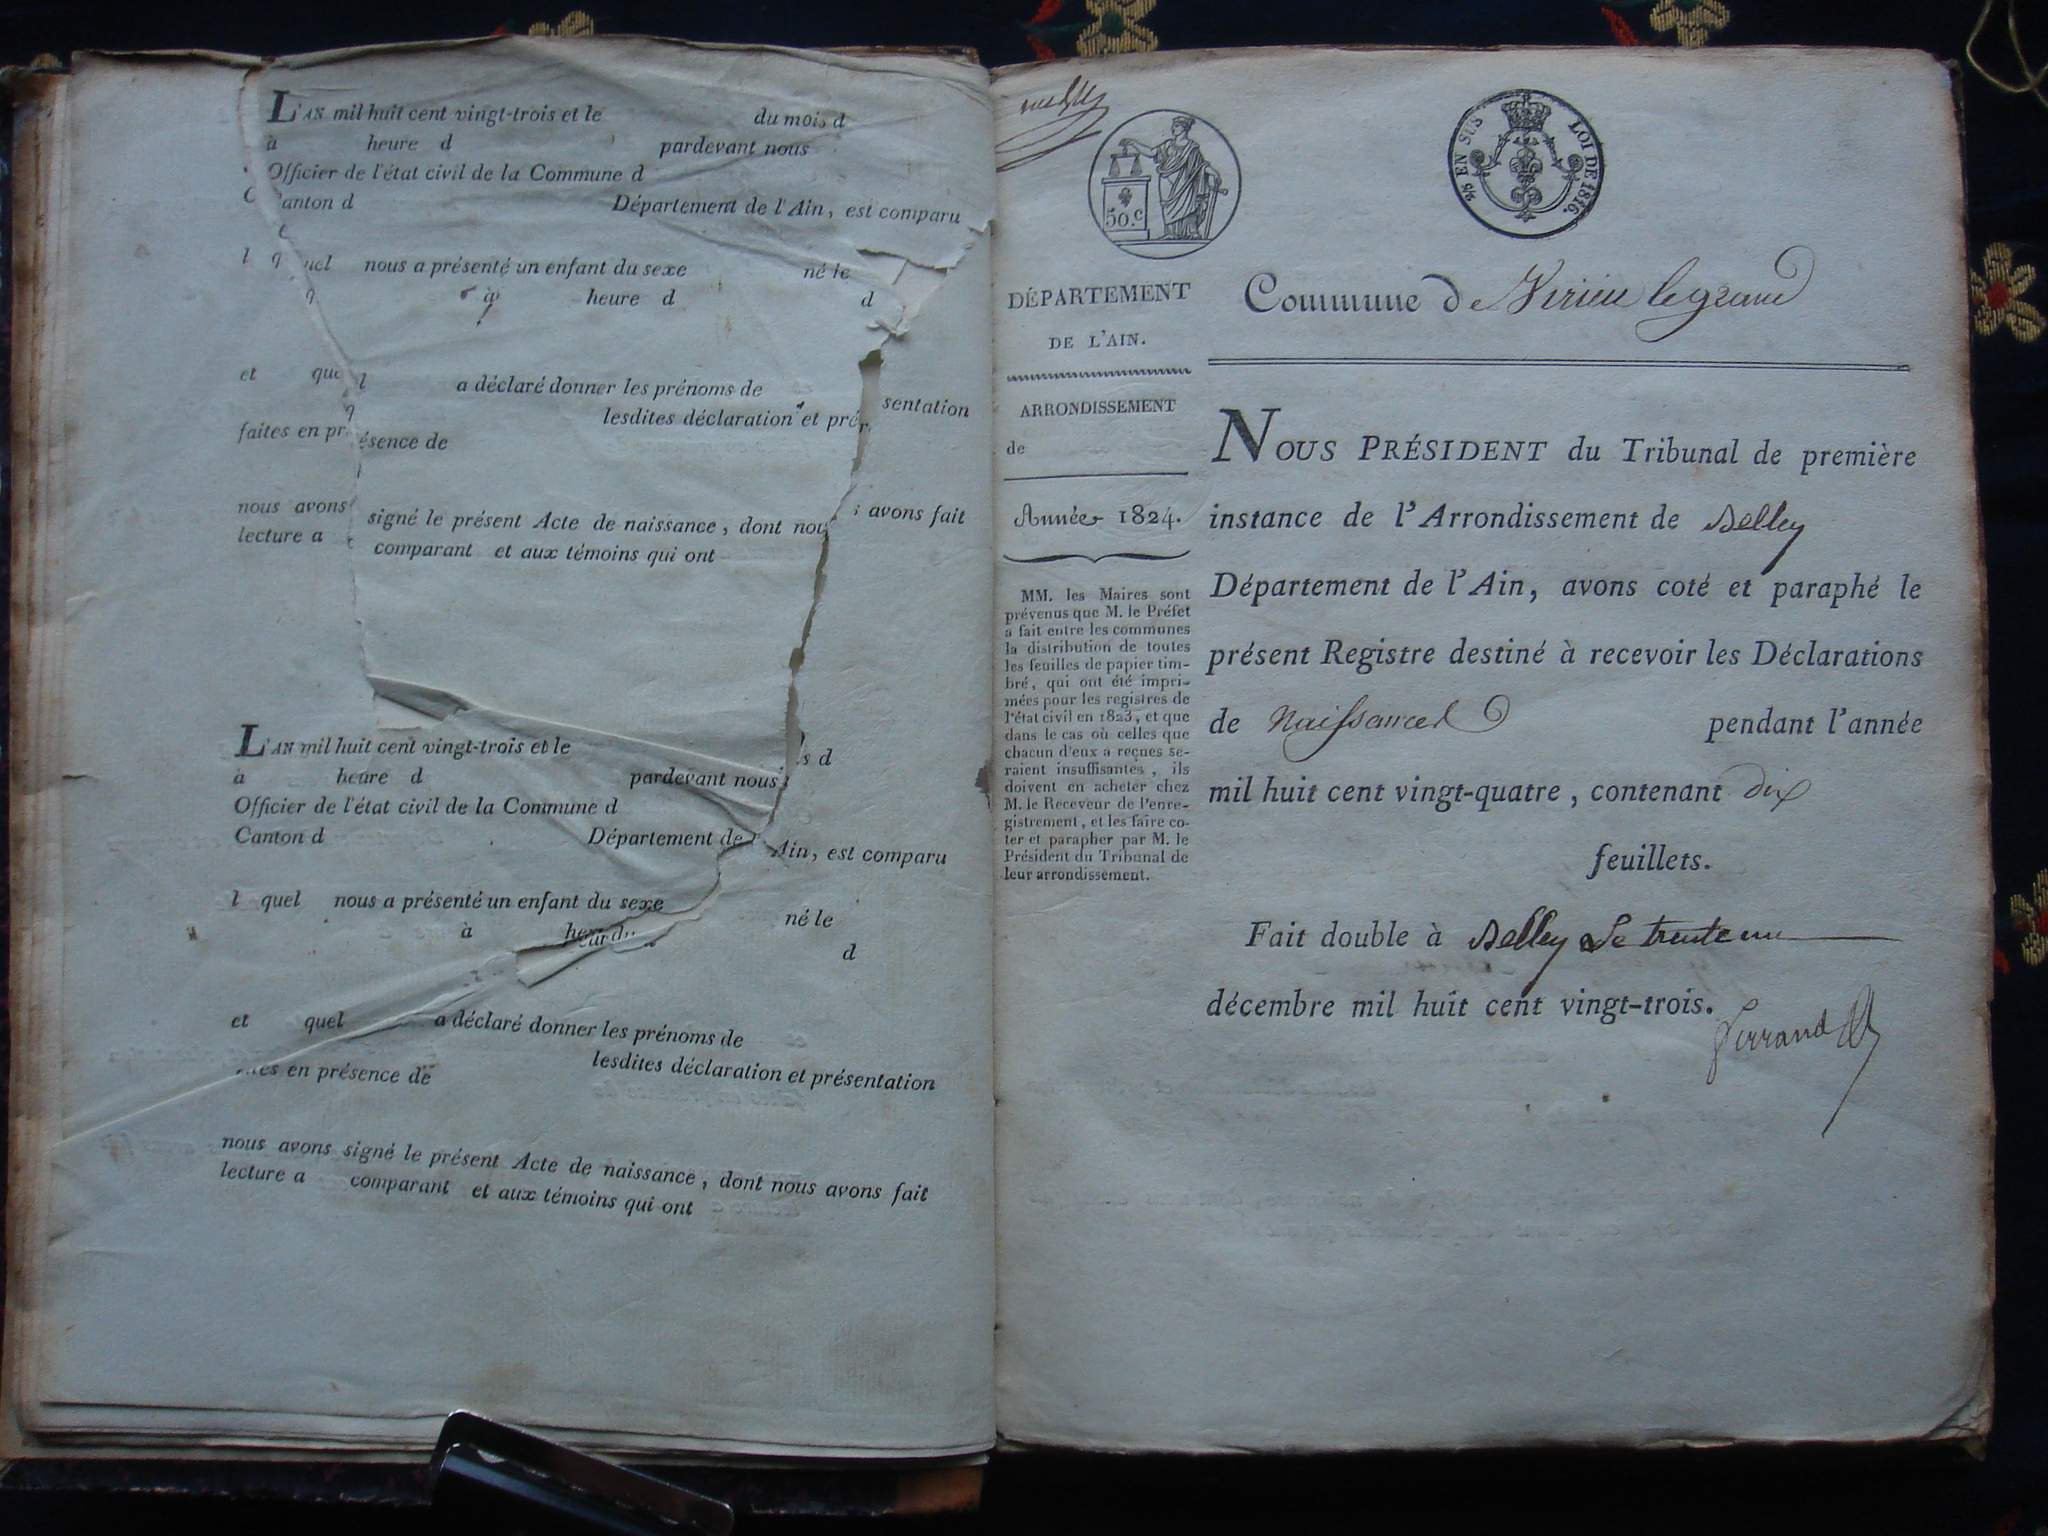 L'AN mil huit cent vingt-trois et le du mois d
à heure d pardevant nous
Officier de l'état civil de la Commune d
Canton d Département de l'Ain, est comparu
l quel nous a présenté un enfant du sexe né le
à heure d d
et quel a déclaré donner les prénoms de
lesdites déclaration et présentation
faites en présence de
nous avons signé le présent Acte de naissance, dont nous avons fait
lecture a comparant et aux témoins qui ont
L'AN mil huit cent vingt-trois et le s d
à heure d pardevant nous
Officier de l'état civil de la Commune d
Canton d Département de l'Ain, est comparu
l quel nous a présenté un enfant du sexe né le
à heure du d
et quel a déclaré donner les prénoms de
lesdites déclaration et présentation
tes en présence de
nous avons signé le présent Acte de naissance, dont nous avons fait
lecture a comparant et aux témoins qui ont
50.c
EN SUS LOI DE 1816.
DÉPARTEMENT
DE L'AIN.
ARRONDISSEMENT
de
Année 1824.
MM. les Maires sont
prévenus que M. le Préfet
a fait entre les communes
la distribution de toutes
les feuilles de papier tim-
bré, qui ont été impri-
mées pour les registres de
l'état civil en 1823, et que
dans le cas où celles que
chacun d'eux a reçues se-
raient insuffisantes, ils
doivent en acheter chez
M. le Receveur de l'enre-
gistrement, et les faire co-
ter et parapher par M. le
Président du Tribunal de
leur arrondissement.
Commune de Virieu legrand
NOUS PRÉSIDENT du Tribunal de première
instance de l'Arrondissement de Belley
Département de l'Ain, avons coté et paraphé le
présent Registre destiné à recevoir les Déclarations
de Naissances pendant l'année
mil huit cent vingt-quatre, contenant dix
feuillets.
Fait double à Belley Le trente un
décembre mil huit cent vingt-trois.